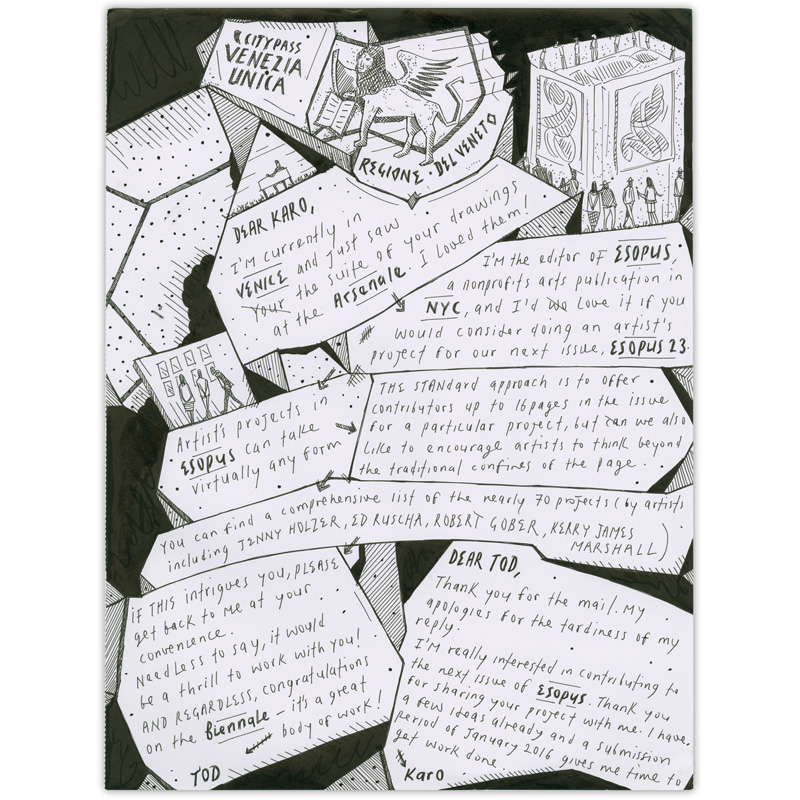 CITYPASS
VENEZIA
UNICA
REGIONE · DEL VENETO
DEAR KARO,
I'M currently in
VENICE and just saw
your the suite of your drawings
at the Arsenale. I loved them!
I'M the editor of ESOPUS,
a nonprofits arts publication in
NYC, and I'd wo love it if you
would consider doing an artist's
project for our next issue, ESOPUS 23.
Artist's projects in
ESOPUS can take
virtually any form
THE STANdard approach is to offer
contributors up to 16 pages in the issue
for a particular project, but can we also
like to encourage artists to think beyond
the traditional confines of the page.
You can find a comprehensive list of the nearly 70 projects (by artists
including JENNY HOLZER, ED RUSCHA, ROBERT GOBER, KERRY JAMES
MARSHALL)
IF THIS intrigues you, PLEASE
get back to me at your
convenience.
Needless to say, it would
be a thrill to work with you!
AND REGARDLESS, congratulations
on the Biennale – it's a great
body of work!
TOD
DEAR TOD,
Thank you for the mail. My
apologies for the tardiness of my
reply.
I'M really interested in contributing to
the next issue of ESOPUS. Thank you
for sharing your project with me. I have
a few ideas already and a submission
period of January 2016 gives me time to
get work done.
Karo